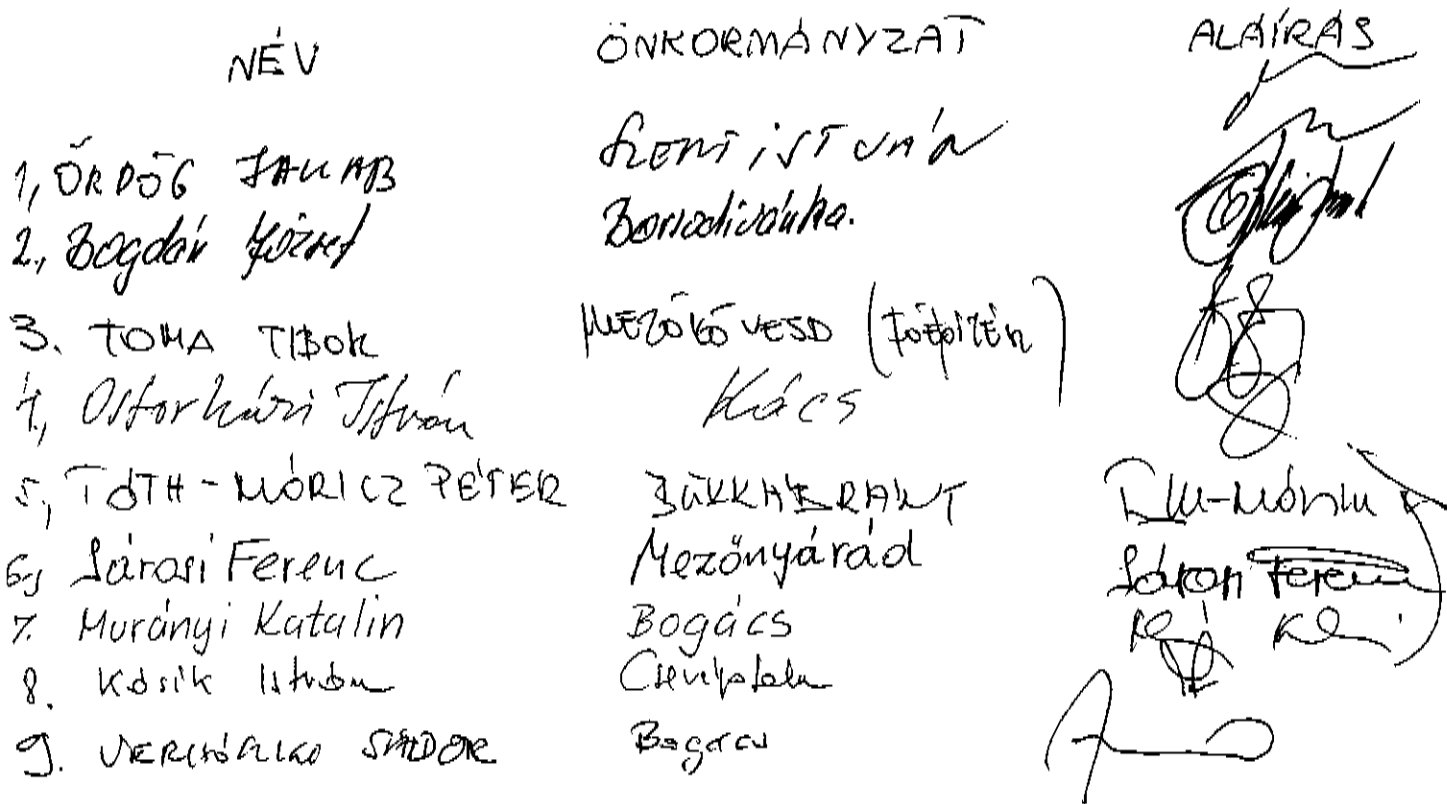 NÉV ÖNKORMÁNYZAT ALÁÍRÁS
1, ÖRDÖG JAKAB SZENTISTVÁN
2., Bogdán József Borsodivánka.
3. TOMA TIBOR MEZŐKÖVESD (FŐÉPÍTÉSZ)
4., Ostorházi István Kács
5., TÓTH-MÓRICZ PÉTER BÜKKÁBRÁNY
6., Sárosi Ferenc Mezőnyárád Ferenc
7. Murányi Katalin Bogács
8. Kósik István Cserépfalu
9. SÁNDOR Bogács